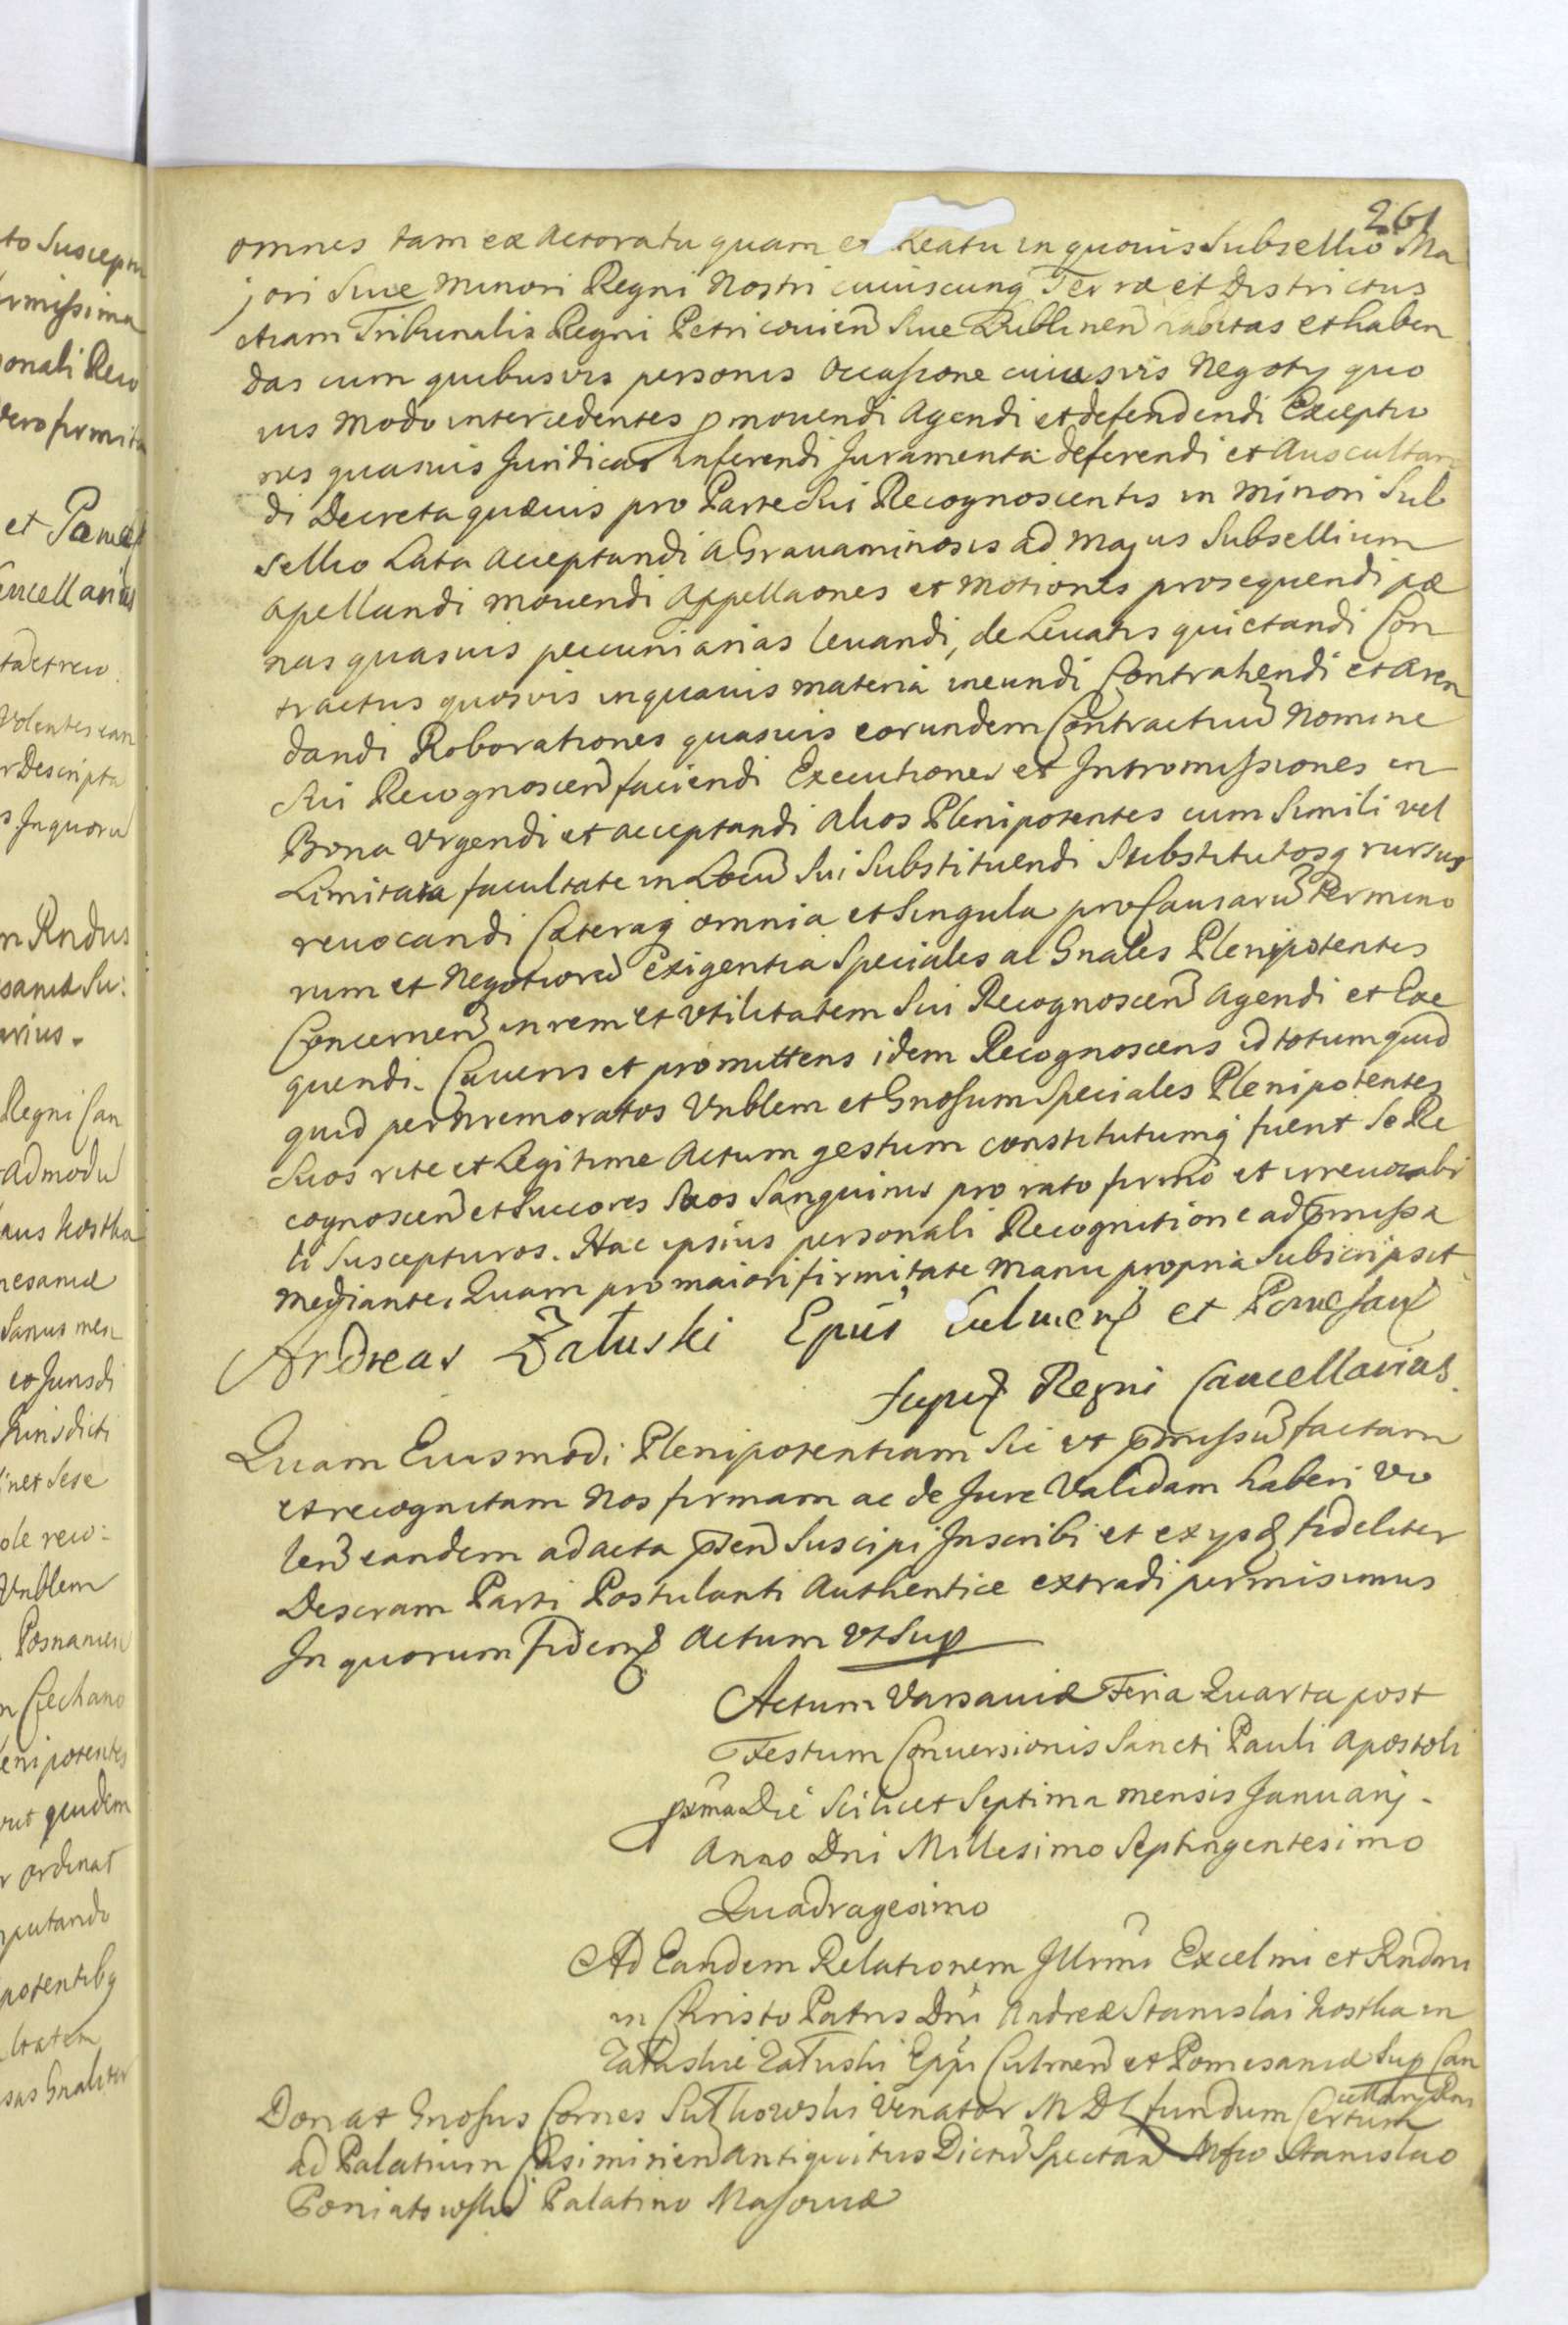 261
omnes tam ex Actoratu quam ex Reatu in quovis Subsellio Ma
jori Sive Minori Regni Nostri cuiuscunq Terræ et Districtus
etiam Tribunalis Regni Petricovien Sive Lublinen habitas et haben
das cum quibusvis personis Occasione cuiusvis Negoty quo
vis Modo intercedentes pmovendi Agendi et defendendi Exceptio
nes quasvis Juridicas inferendi Juramenta deferendi et Auscultan
di Decreta quævis pro Parte Sui Recognoscentis in Minori Sub
sellio Lata Acceptandi A Gravaminosis ad Majus Subsellium
Apellandi Movendi Appellaones et Motiones prosequendi pæ
nas quasvis pecuniarias levandi, de Levatis quietandi Con
tractus quosvis in quavis materia ineundi Contrahendi et Aren
dandi Roborationes quasvis eorundem Contractuu Nomine
Sui Recognoscen faciendi Executiones et Intromissiones in
Bona Vrgendi et acceptandi Alios Plenipotentes cum Simili vel
Limitata facultate in Locu Sui Substituendi Substitutosq rursus
revocandi Cæteraq omnia et Singula pro Causaru Termino
rum et Negotioru Exigentia Speciales al Gnales Plenipotentes
Concernen in rem et Vtilitatem Sui Recognoscen Agendi et Exe
quendi. Cavens et promittens idem Recognoscens id totum quid
quid per Nremoratos Vnblem et Gnosum Speciales Plenipotentes
Suos rite et Legitime Actum gestum constitutumq fuerit Se Re
cognoscen et Succores Suos Sanguineos pro rato firmo et irrevocabi
li Suscepturos. Hac ipsius personali Recognitione ad pmissa
mediante. Quam pro maiori firmitate Manu propria Subscripsit
Andreas Załuski Epus Culmen et Pomesan
Supr Regni Cancellarius.
Quam Eiusmodi Plenipotentiam Sic vt pmissu factam
et recognitam Nos firmam ac de Jure Validam haberi Vo
len eandem ad acta psen Suscipi Inscribi et ex ys fideliter
Descram Parti Postulanti Authentice extradi permisimus
In quorum fidem Actum vt Sup
Actum Varsaviæ Feria Quarta post
Festum Conversionis Sancti Pauli Apostoli
pxma Die Scilicet Septima mensis Januarij.
Anno Dni Millesimo Septingentesimo
Quadragesimo
Ad Eandem Relationem Illrmi Excelmi et Rndmi
in Christo Patris Dni Andreæ Stanislai Kostka in
Załuskie Załuski Eppi Culmen et Pomesaniæ Sup Can
cellarij Rni
Donat Gnosus Comes Sułkowski Venator M D L fundum Certum
ad Palatium Casimirien antiquitus Dictu Spectan Mfco Stanislao
Poniatowski Palatino Masoviæ